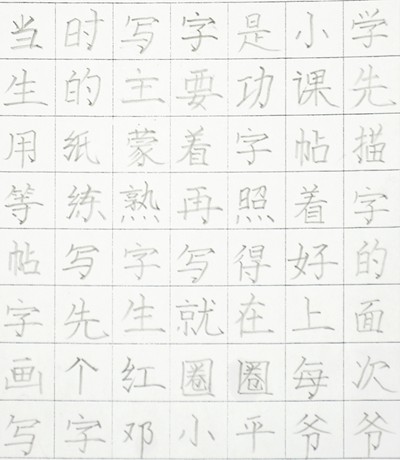 当时写字是小学
生的主要功课先
用纸蒙着字帖描
等练熟再照着字
帖写字写得好的
字先生就在上面
画个红圈圈每次
写字邓小平爷爷